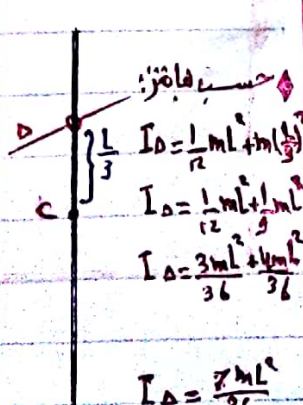 حسب هايغنز:
Δ
L/3
C
I_Δ = 1/12 mL² + m(L/3)²
I_Δ = 1/12 mL² + 1/9 mL²
I_Δ = 3mL²/36 + 4mL²/36
I_Δ = 7mL²/36